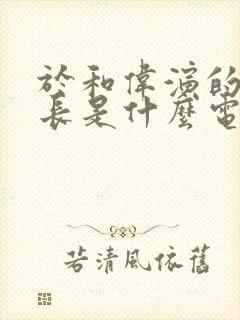 於和偉演的
長是什麼電
若清風依舊